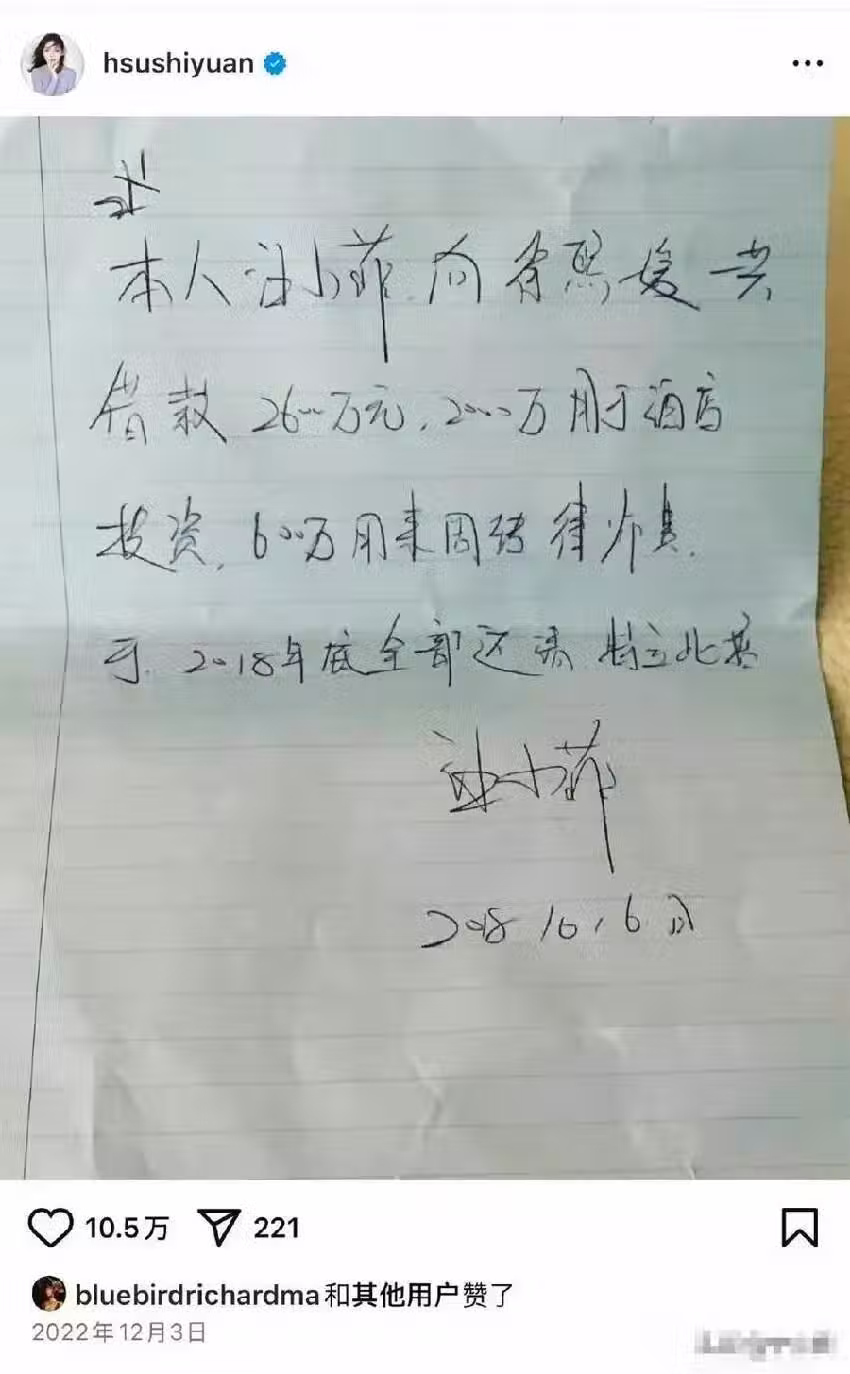 hsushiyuan
本人汪小菲向熙媛共
借款2600万元,2000万用于酒店
投资,600万用来周转律师费.
于2018年底全部还清 特立此
汪小菲
2018 10,6日
10.5万 221
bluebirdrichardma和其他用户赞了
2022年12月3日